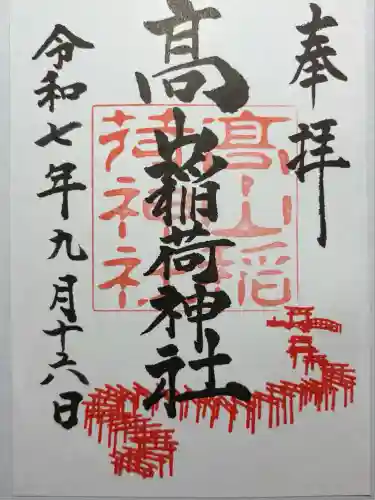 奉拝
髙山稲荷神社
髙山稲荷神社
令和七年九月十六日